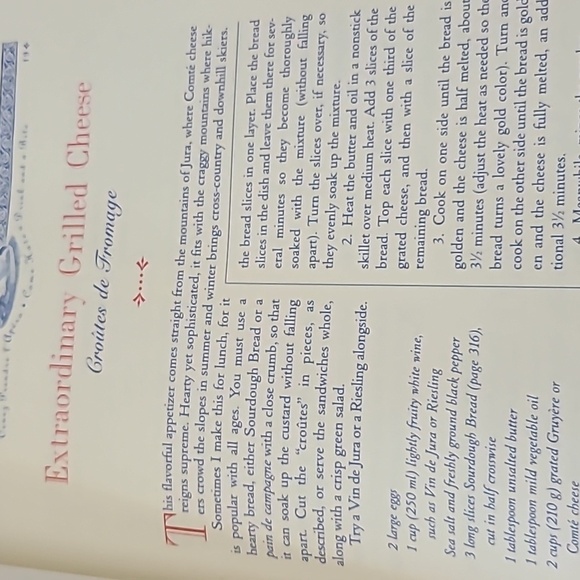 196
Extraordinary Grilled Cheese
Croûtes de Fromage
This flavorful appetizer comes straight from the mountains of Jura, where Comté cheese
reigns supreme. Hearty yet sophisticated, it fits with the craggy mountains where hik-
ers crowd the slopes in summer and winter brings cross-country and downhill skiers.
Sometimes I make this for lunch, for it
is popular with all ages. You must use a
hearty bread, either Sourdough Bread or a
pain de campagne with a close crumb, so that
it can soak up the custard without falling
apart. Cut the "croûtes" in pieces, as
described, or serve the sandwiches whole,
along with a crisp green salad.
Try a Vin de Jura or a Riesling alongside.
2 large eggs
1 cup (250 ml) lightly fruity white wine,
such as Vin de Jura or Riesling
Sea salt and freshly ground black pepper
3 long slices Sourdough Bread (page 316),
cut in half crosswise
1 tablespoon unsalted butter
1 tablespoon mild vegetable oil
2 cups (210 g) grated Gruyère or
Comté cheese
the bread slices in one layer. Place the bread
slices in the dish and leave them there for sev-
eral minutes so they become thoroughly
soaked with the mixture (without falling
apart). Turn the slices over, if necessary, so
they evenly soak up the mixture.
2. Heat the butter and oil in a nonstick
skillet over medium heat. Add 3 slices of the
bread. Top each slice with one third of the
grated cheese, and then with a slice of the
remaining bread.
3. Cook on one side until the bread is
golden and the cheese is half melted, about
3½ minutes (adjust the heat as needed so the
bread turns a lovely gold color). Turn and
cook on the other side until the bread is gold
en and the cheese is fully melted, an add
tional 3½ minutes.
4. Meanwhile,